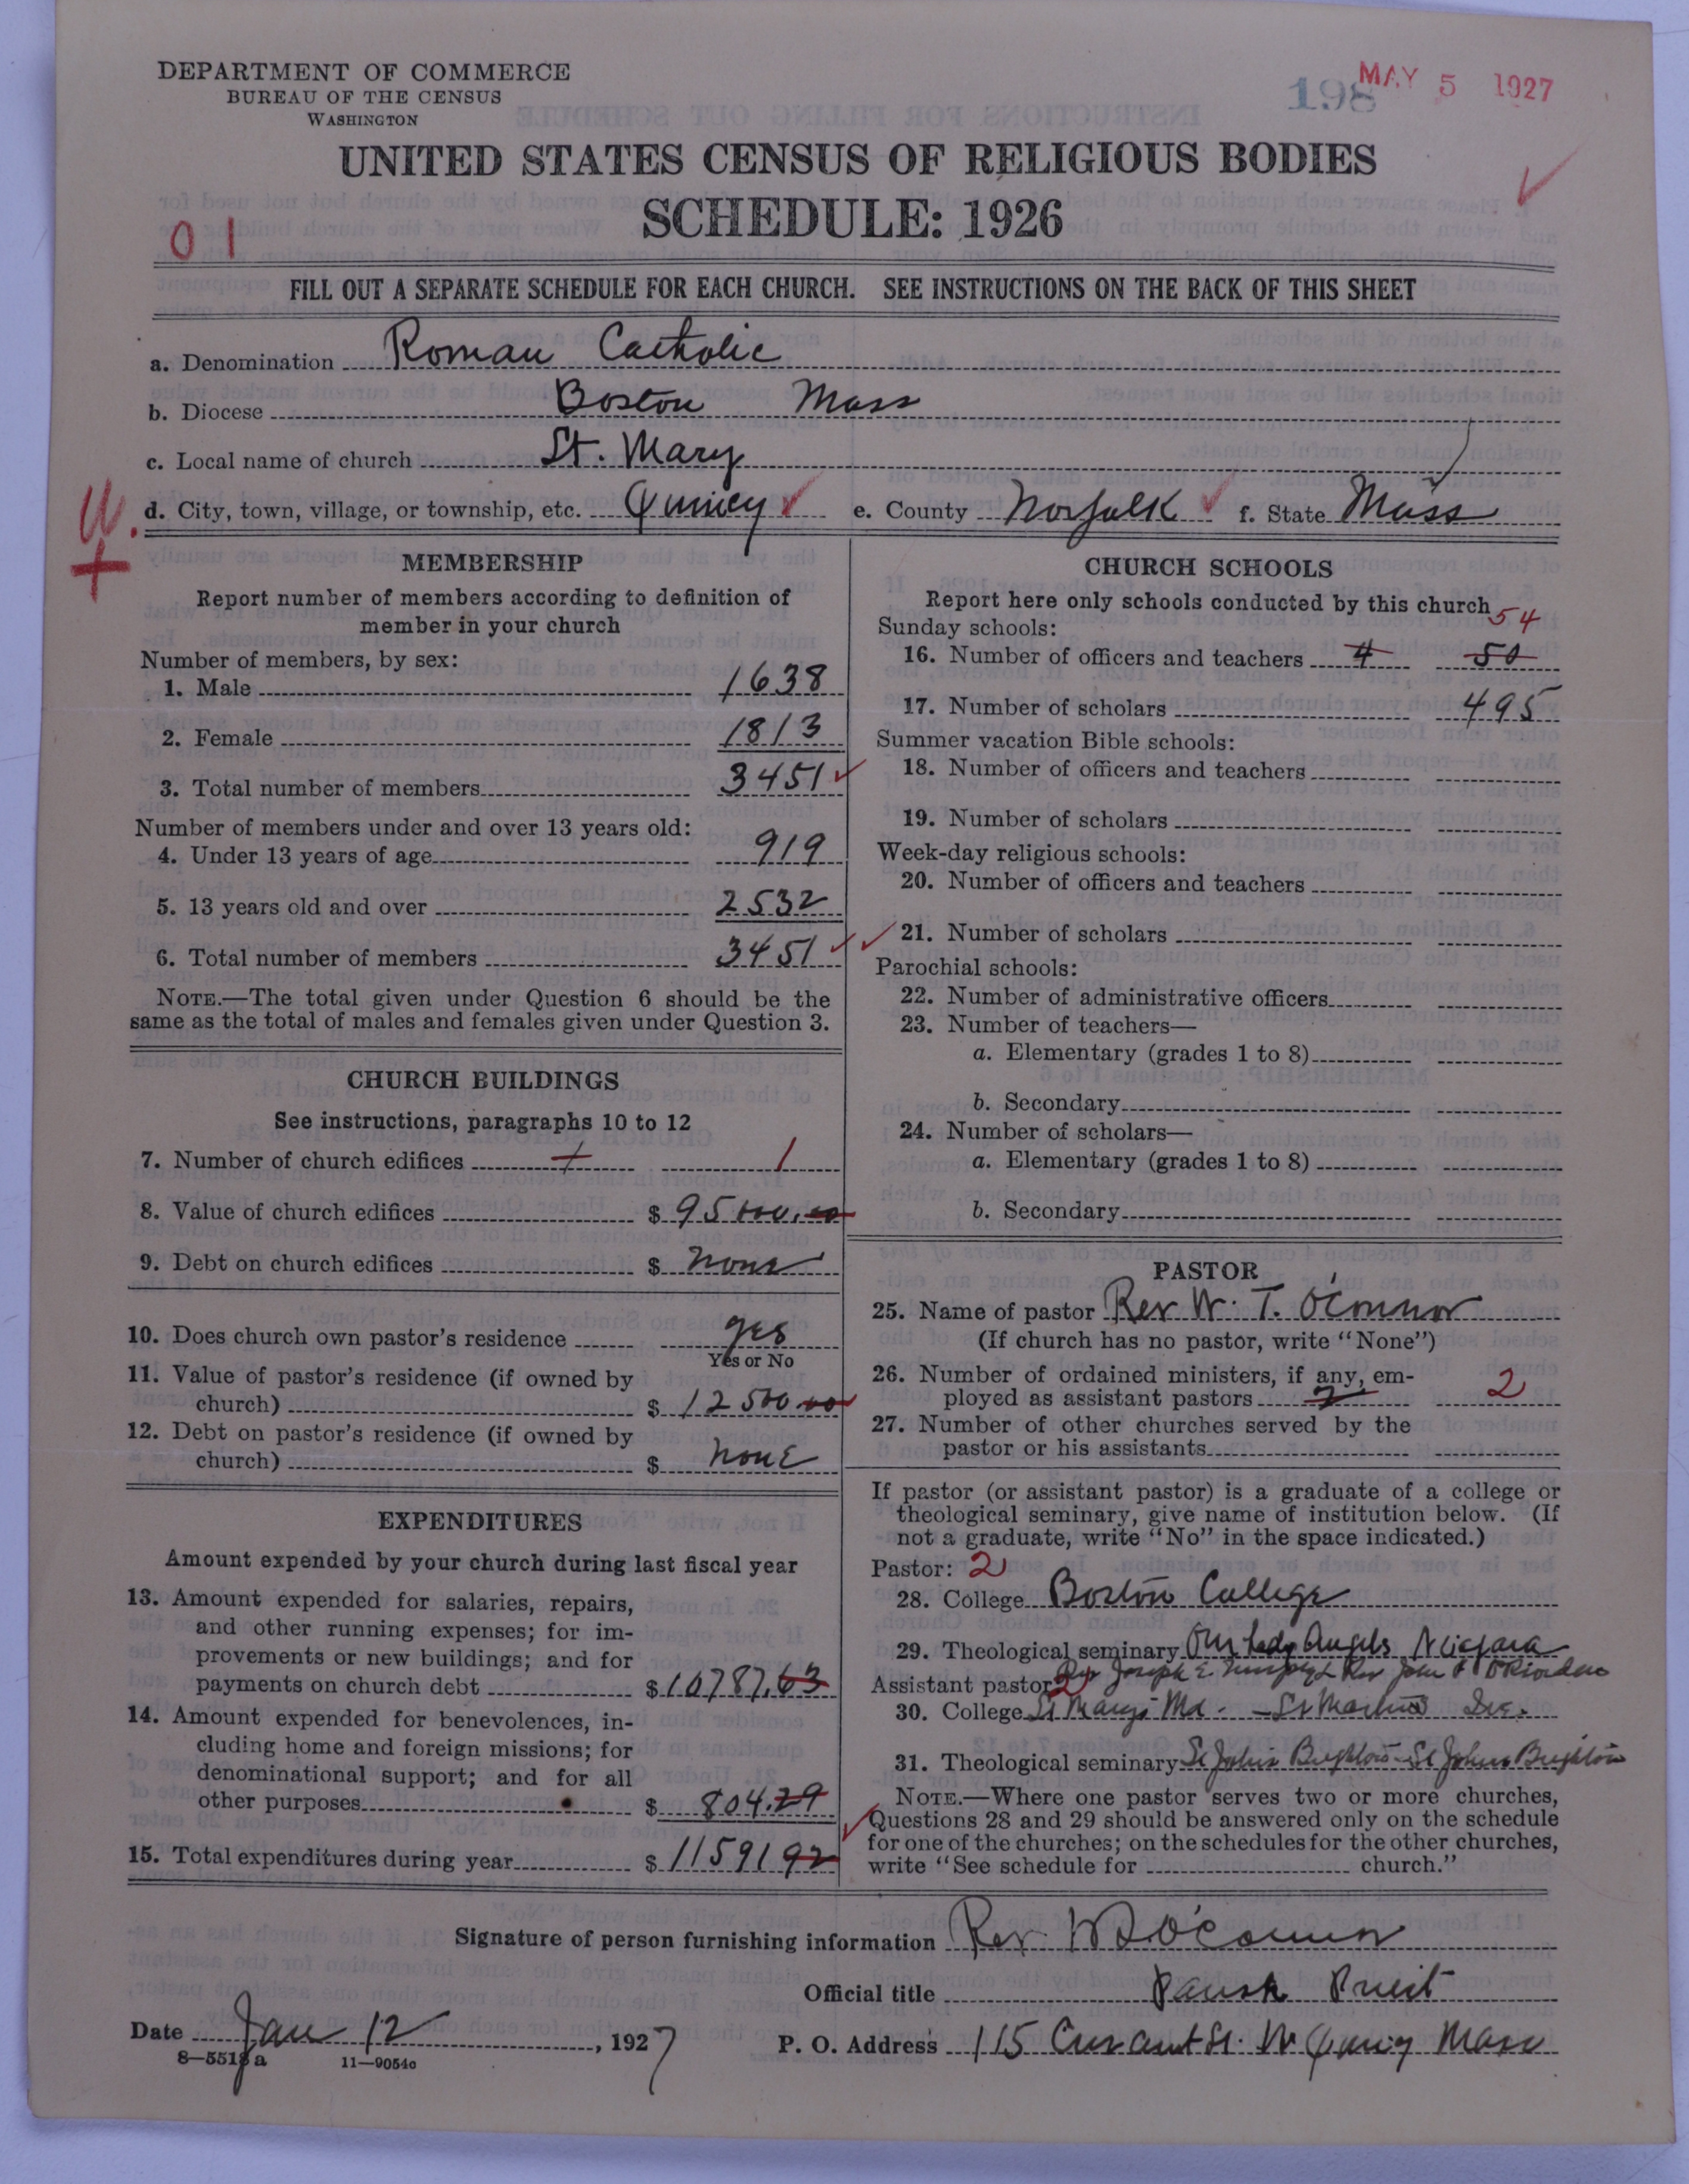 DEPARTMENT OF COMMERCE
BUREAU OF THE CENSUS
WASHINGTON
198 MAY 5 1927
UNITED STATES CENSUS OF RELIGIOUS BODIES
SCHEDULE: 1926
01
FILL OUT A SEPARATE SCHEDULE FOR EACH CHURCH. SEE INSTRUCTIONS ON THE BACK OF THIS SHEET
a. Denomination Roman Catholic
b. Diocese Boston Mass
c. Local name of church St. Mary
W. d. City, town, village, or township, etc. Quincy e. County Norfolk f. State Mass
MEMBERSHIP
Report number of members according to definition of
member in your church
Number of members, by sex:
1. Male 1638
2. Female 1813
3. Total number of members 3451
Number of members under and over 13 years old:
4. Under 13 years of age 919
5. 13 years old and over 2532
6. Total number of members 3451
NOTE.—The total given under Question 6 should be the
same as the total of males and females given under Question 3.
CHURCH BUILDINGS
See instructions, paragraphs 10 to 12
7. Number of church edifices 1 1
8. Value of church edifices $ 95000.00
9. Debt on church edifices $ none
10. Does church own pastor's residence yes
Yes or No
11. Value of pastor's residence (if owned by
church) $ 12500.00
12. Debt on pastor's residence (if owned by
church) $ none
EXPENDITURES
Amount expended by your church during last fiscal year
13. Amount expended for salaries, repairs,
and other running expenses; for im-
provements or new buildings; and for
payments on church debt $ 10787.63
14. Amount expended for benevolences, in-
cluding home and foreign missions; for
denominational support; and for all
other purposes $ 804.29
15. Total expenditures during year $ 11591 92
CHURCH SCHOOLS
Report here only schools conducted by this church
54
Sunday schools:
16. Number of officers and teachers 4 50
17. Number of scholars 495
Summer vacation Bible schools:
18. Number of officers and teachers
19. Number of scholars
Week-day religious schools:
20. Number of officers and teachers
21. Number of scholars
Parochial schools:
22. Number of administrative officers
23. Number of teachers—
a. Elementary (grades 1 to 8)
b. Secondary
24. Number of scholars—
a. Elementary (grades 1 to 8)
b. Secondary
PASTOR
25. Name of pastor Rev W. T. O'Connor
(If church has no pastor, write "None")
26. Number of ordained ministers, if any, em-
ployed as assistant pastors 2 2
27. Number of other churches served by the
pastor or his assistants
If pastor (or assistant pastor) is a graduate of a college or
theological seminary, give name of institution below. (If
not a graduate, write "No" in the space indicated.)
Pastor: 2
28. College Boston College
29. Theological seminary Our Lady Angels Niagara
Assistant pastor 2 Rev Joseph E. Murphy & Rev John F O'Riordan
30. College St Marys Md.
31. Theological seminary St Johns Brighton - St Johns Brighton
NOTE.—Where one pastor serves two or more churches,
Questions 28 and 29 should be answered only on the schedule
for one of the churches; on the schedules for the other churches,
write "See schedule for church."
Signature of person furnishing information Rev. W T O'Connor
Official title Parish Priest
Date Jan 12, 1927 P. O. Address 115 St. W Quincy Mass
8—5518 a 11—9054c